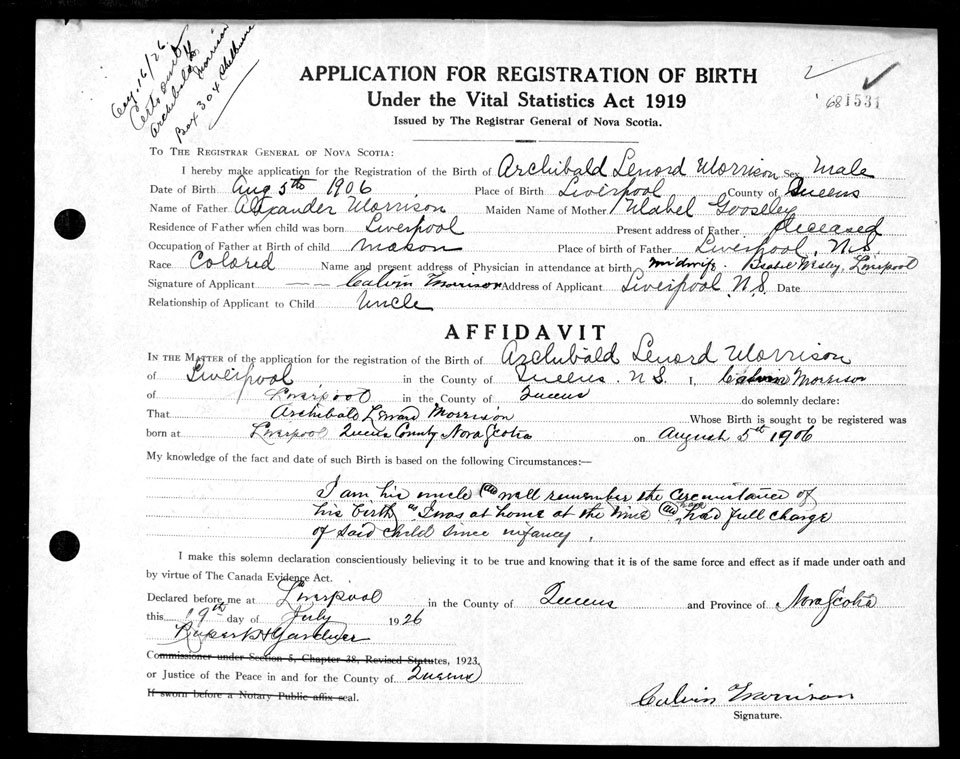 Aug. 16/26.
Certs sent to
Archibald L. Morrison
Box 304 Shelburne
APPLICATION FOR REGISTRATION OF BIRTH
Under the Vital Statistics Act 1919
Issued by The Registrar General of Nova Scotia.
681531
TO THE REGISTRAR GENERAL OF NOVA SCOTIA:
I hereby make application for the Registration of the Birth of Archibald Lenord Morrison Sex Male
Date of Birth Aug 5th 1906 Place of Birth Liverpool County of Queens
Name of Father Alexander Morrison Maiden Name of Mother Mabel Gooseley
Residence of Father when child was born Liverpool Present address of Father deceased
Occupation of Father at Birth of child Mason Place of birth of Father Liverpool, N.S.
Race Colored Name and present address of Physician in attendance at birth midwife. Liverpool
Signature of Applicant Calvin Morrison Address of Applicant Liverpool, N.S. Date
Relationship of Applicant to Child Uncle
AFFIDAVIT
IN THE MATTER of the application for the registration of the Birth of Archibald Lenord Morrison
of Liverpool in the County of Queens. N.S. I, Calvin Morrison
of Liverpool in the County of Queens do solemnly declare:
That Archibald Lenard Morrison Whose Birth is sought to be registered was
born at Liverpool Queens County Nova Scotia on August 5th 1906
My knowledge of the fact and date of such Birth is based on the following Circumstances:—
I am his uncle and well remember the circumstance of
his birth as I was at home at the time and have had full charge
of said child since infancy.
I make this solemn declaration conscientiously believing it to be true and knowing that it is of the same force and effect as if made under oath and
by virtue of The Canada Evidence Act.
Declared before me at Liverpool in the County of Queens and Province of Nova Scotia
this 19th day of July 1926
Rupert H Gardner
Commissioner under Section 5, Chapter 38, Revised Statutes, 1923.
or Justice of the Peace in and for the County of Queens
If sworn before a Notary Public affix seal.
Calvin Morrison
Signature.